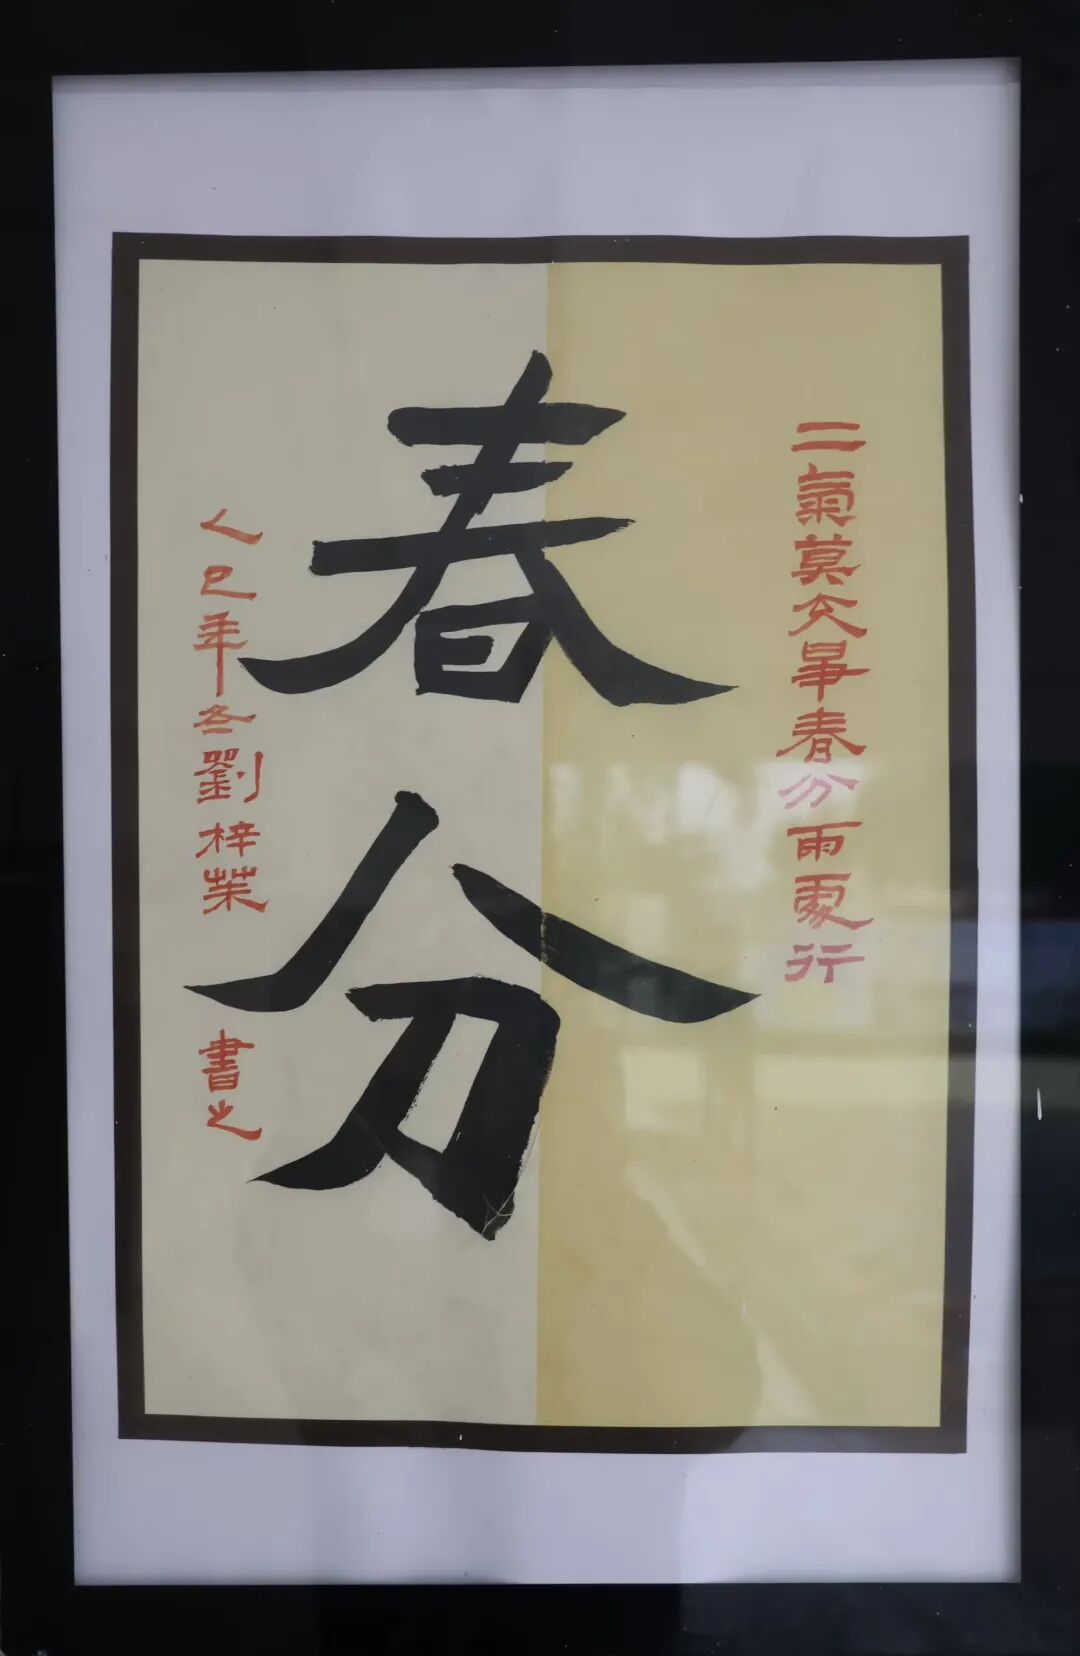 二氣莫交爭春分雨處行
春分
乙巳年冬劉梓茱
書之